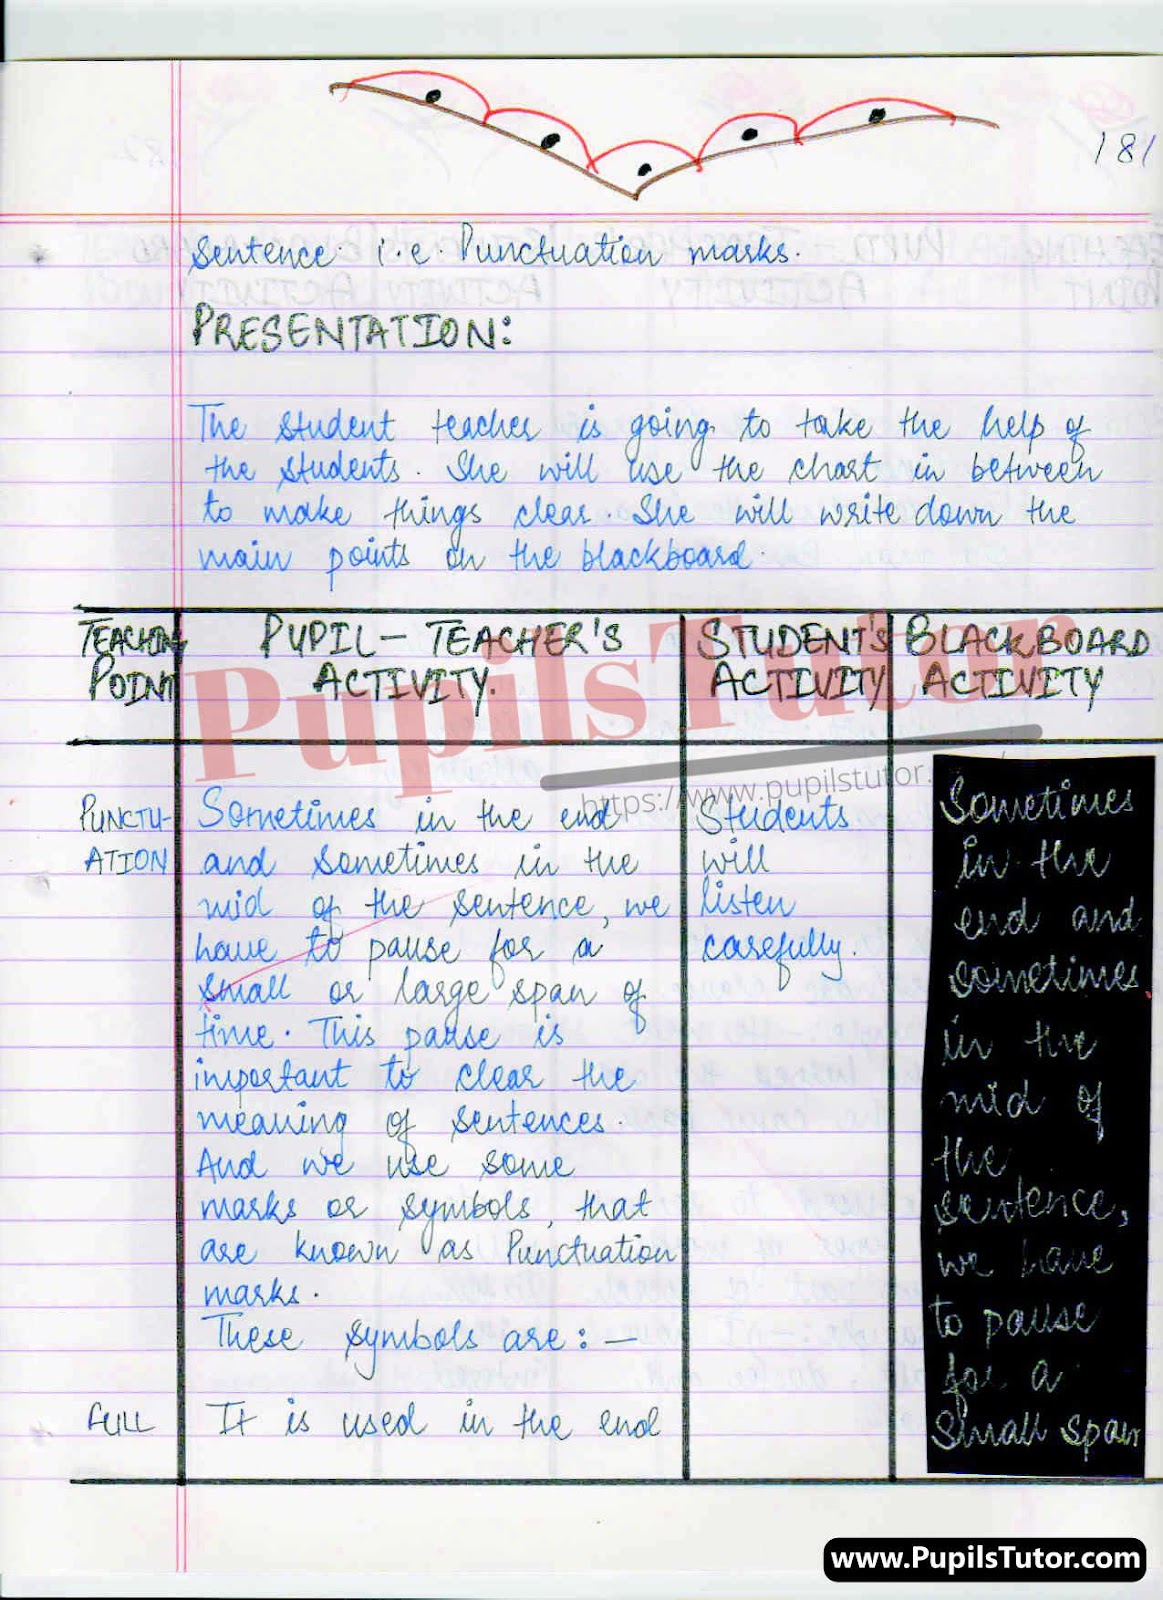 181
Sentence i.e. Punctuation marks.
PRESENTATION:
The student teacher is going to take the help of
the students. She will use the chart in between
to make things clear. She will write down the
main points on the blackboard.
TEACHING
POINT
PUPIL - TEACHER'S
ACTIVITY.
STUDENT'S
ACTIVITY
BLACKBOARD
ACTIVITY
PupilsTutor
https://www.pupilstutor.
PUNCTU-
ATION
Sometimes in the end
and sometimes in the
mid of the sentence, we
have to pause for a
small or large span of
time. This pause is
important to clear the
meaning of sentences.
And we use some
marks or symbols, that
are known as Punctuation
marks.
These symbols are: —
Students
will
listen
carefully.
Sometimes
in the
end and
sometimes
in the
mid of
the
sentence,
we have
to pause
for a
small span
FULL
It is used in the end
www.PupilsTutor.com